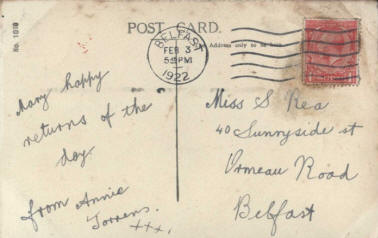 No. 1030
POST CARD.
Address only to be here.
BELFAST
FEB 3
5:5 PM
1922
Many happy
returns of the
day
from Annie
Torrens.
xxx.
Miss S Rea
40 Sunnyside st
Ormeau Road
Belfast